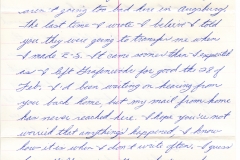 aren't going too bad here in
The last time I wrote I believe I told
you they were going to transfer me when
I made E-5. It came sooner than I expected
as I left for good the 28 of
Feb. I'd been waiting on hearing from
you back home, but my mail from home
has never reached here. I hope you're not
worried that anything's happened, I know
how it is when I don't write often, I guess